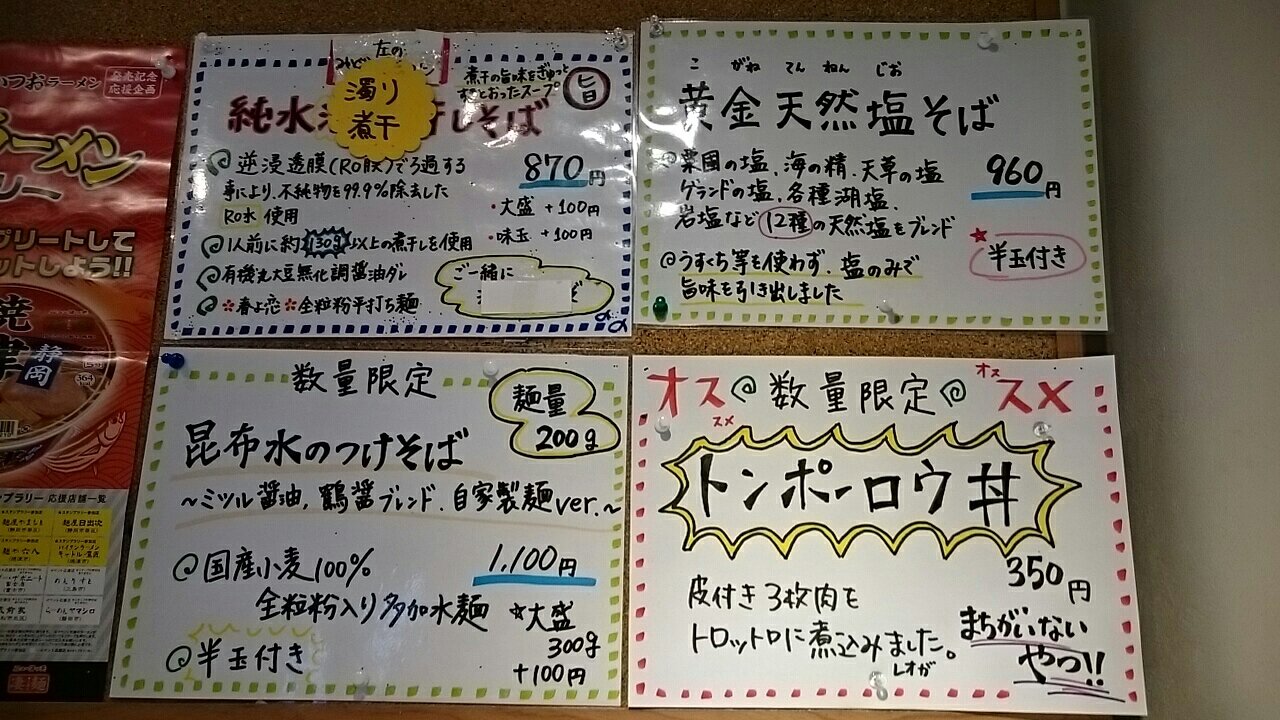 いつおラーメン
発売記念
応援企画
ラーメン
リー
プリートして
ットしよう!!
焼
津
静岡
364
ンプラリー 応援店舗一覧
麺屋やましょ
麺屋日出次
麺や六八
凄麺
左の
濁り
煮干
煮干の旨味をぎゅっと
すきとおったスープ
旨
純水
干しそば
逆浸透膜(RO膜)でろ過する
事により、不純物を99.9%除去した
RO水 使用
870円
・大盛 +100円
・味玉 +100円
1人前に約130g以上の煮干しを使用
有機丸大豆無化調醤油ダレ
春よ恋 全粒粉平打ち麺
ご一緒に
こ がね てん ねん じお
黄金天然塩そば
粟国の塩、海の精、天草の塩
ゲランドの塩、各種湖塩、
岩塩など12種の天然塩をブレンド
960円
うすくち等を使わず、塩のみで
旨味を引き出しました
半玉付き
数量限定
麺量
200g
昆布水のつけそば
~ミツル醤油、鶴醤ブレンド、自家製麺ver.~
国産小麦100%
全粒粉入り多加水麺
1,100円
大盛
300g
+100円
半玉付き
オススメ
数量限定
オススメ
トンポーロウ丼
350円
皮付き3枚肉を
トロットロに煮込みました。
レオが
まちがいない
やつ!!